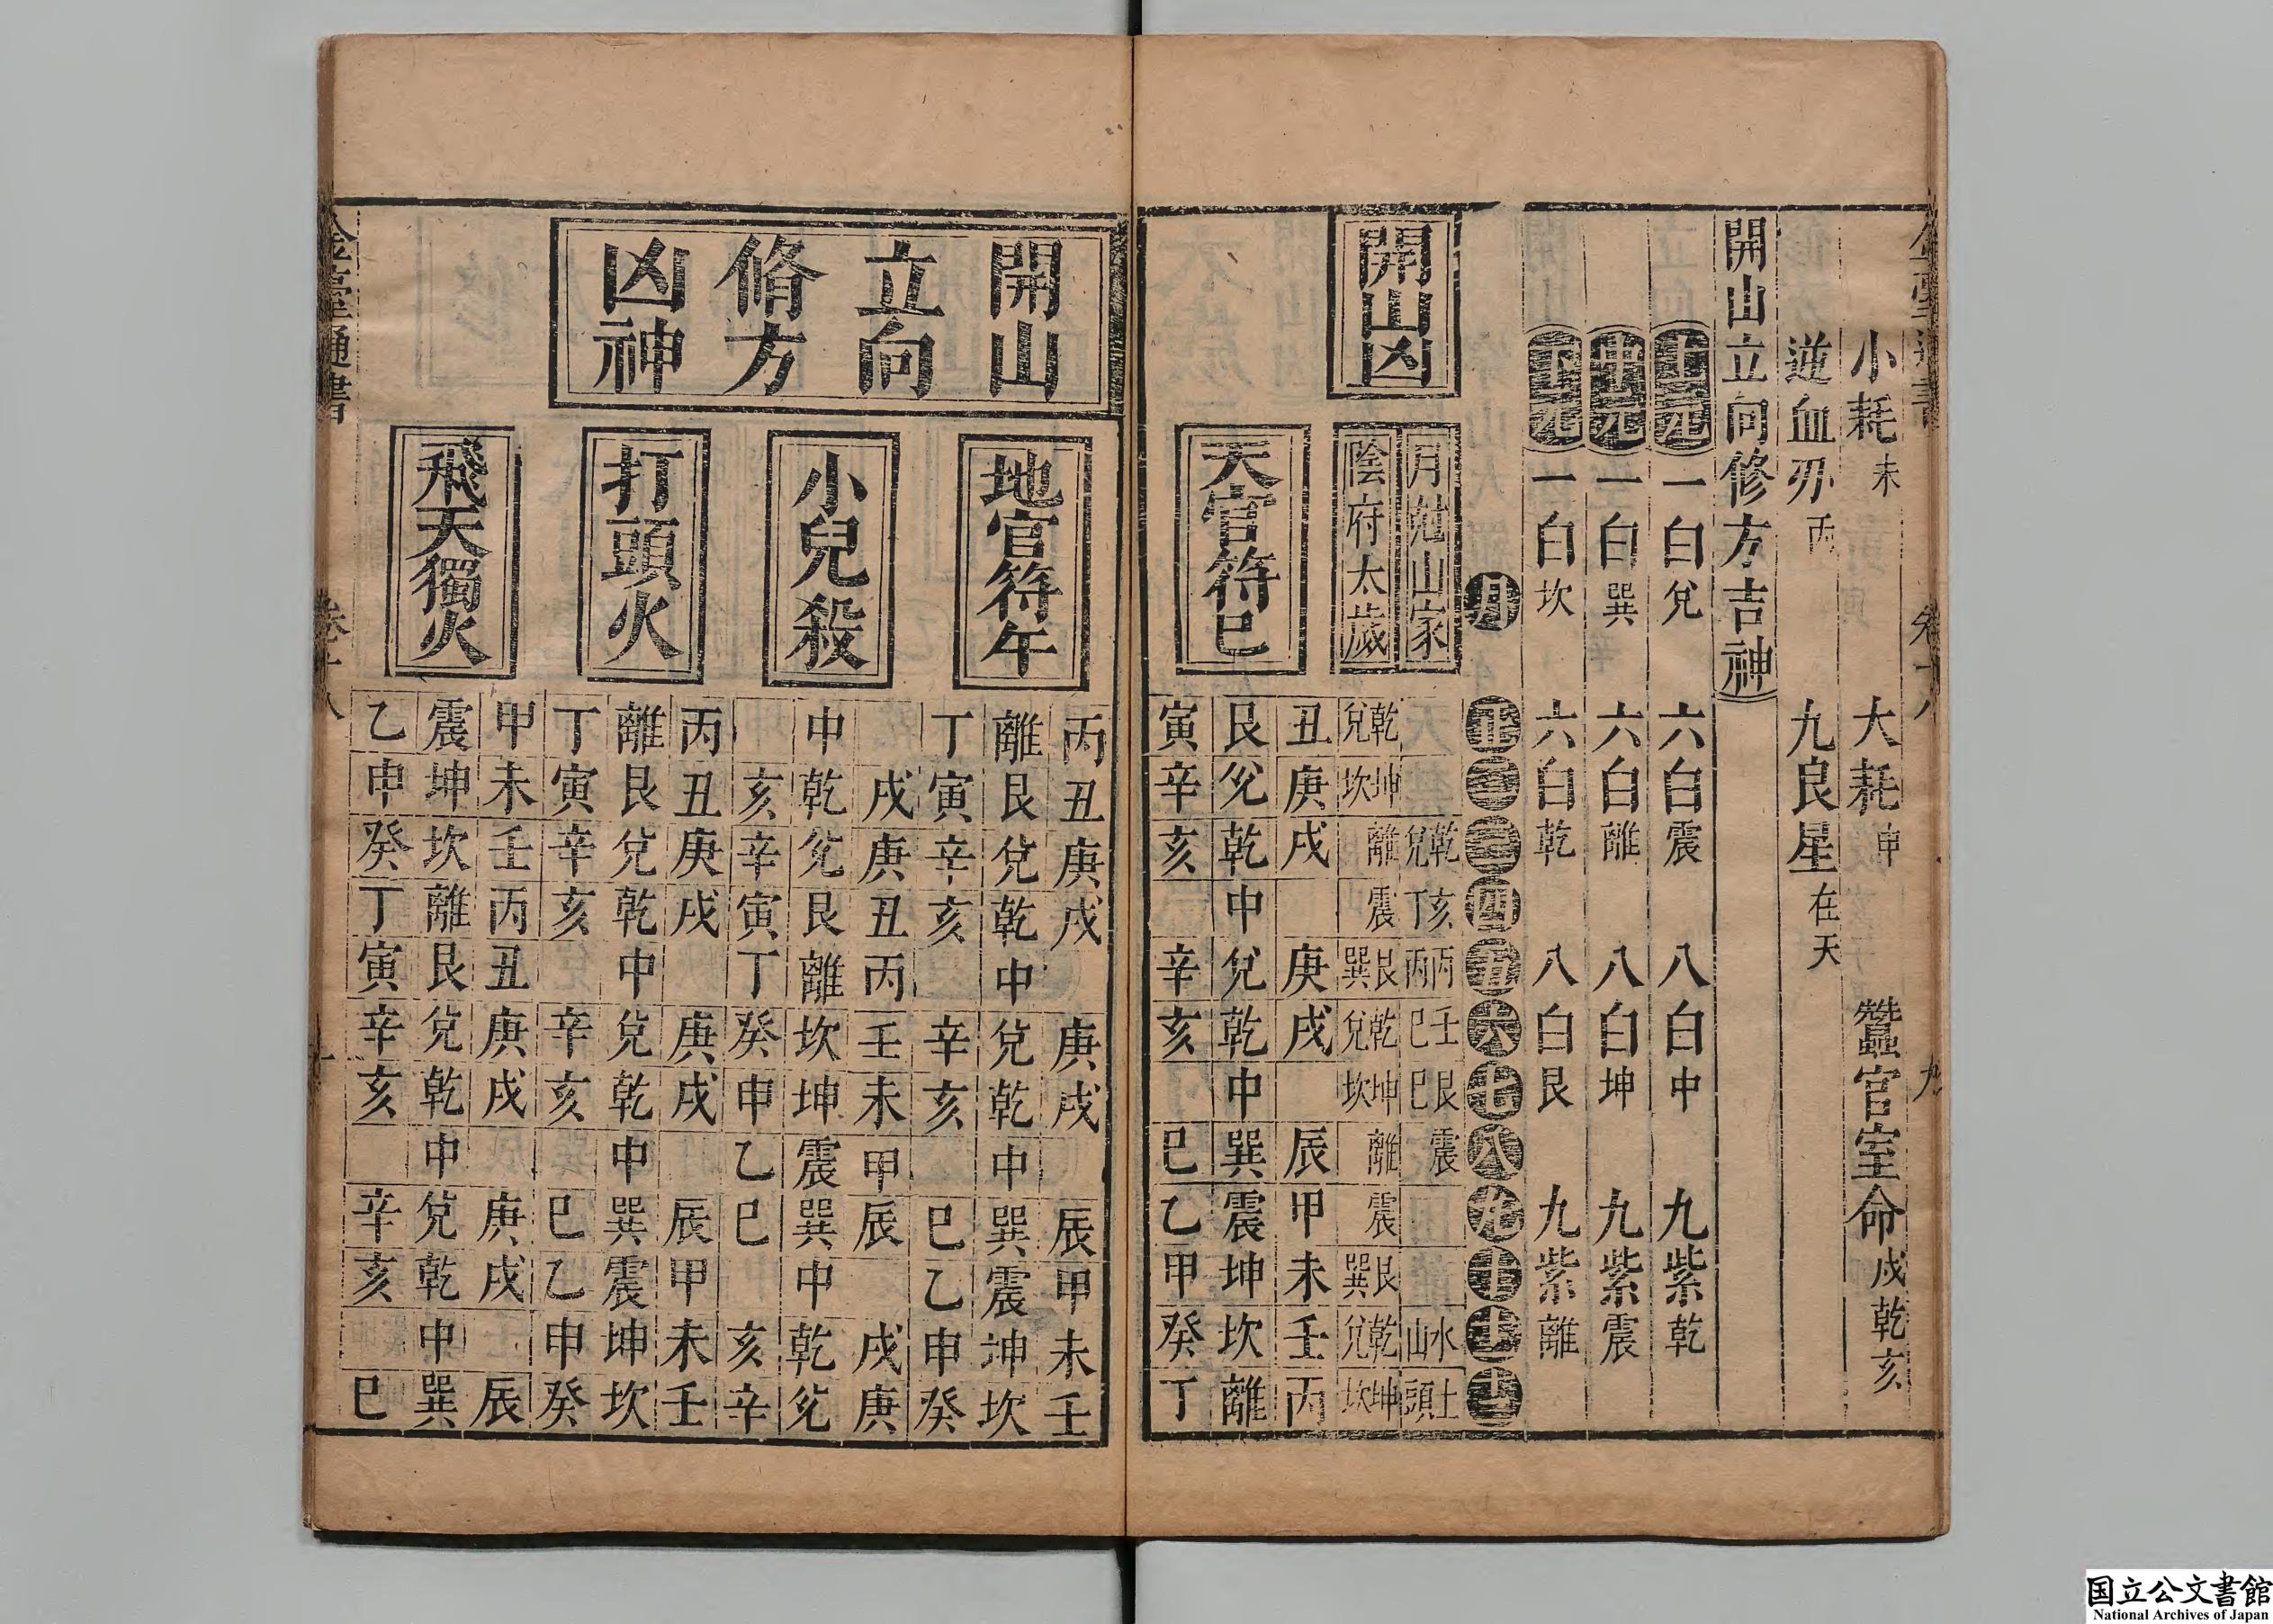 小耗未　大耗申　蠶官室命戌乾亥
逆血刃丙　九良星在天
開山立向修方吉神
上元　一白兌　六白震　八白中　九紫乾
中元　一白巽　六白離　八白坤　九紫震
下元　一白坎　六白乾　八白艮　九紫離
月　正　二　三　四　五　六　七　八　九　十　十一　十二
開山凶
月尅山家　乾兌　亥丁　丙丙　壬巳　艮巳　震　水山　土頭
陰府太歲　乾兌　坤坎　離　震　艮巽　乾兌　坤坎　離　震　艮巽　乾兌　坤坎
天官符巳
丑庚戌　庚戌　辰甲未壬丙
艮兌乾中兌乾中巽震坤坎離
寅辛亥　辛亥　巳乙甲癸丁
開山
立向
脩方
凶神
地官符午
丙丑庚戌　庚戌　辰甲未壬
離艮兌乾中兌乾中巽震坤坎
丁寅辛亥　辛亥　巳乙申癸
小兒殺
戌庚丑丙壬未甲辰　戌庚
中乾兌艮離坎坤震巽中乾兌
亥辛寅丁癸申乙巳　亥辛
打頭火
丙丑庚戌　庚戌　辰甲未壬
離艮兌乾中兌乾中巽震坤坎
丁寅辛亥　辛亥　巳乙申癸
飛天獨火
甲未壬丙丑庚戌　庚戌　辰
震坤坎離艮兌乾中兌乾中巽
乙申癸丁寅辛亥　辛亥　巳
通書
国立公文書館
National Archives of Japan